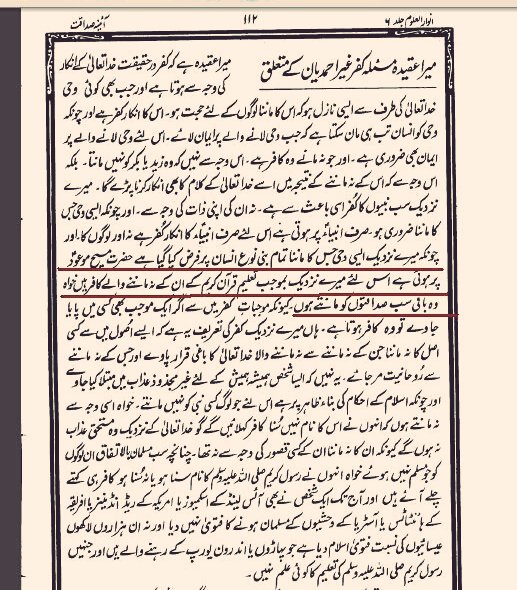 انوار العلوم جلد ۶ ۱۱۲ آئینہ صداقت
میرا عقیدہ مسئلہ کفر غیر احمدیان کے متعلق میرا عقیدہ ہے کہ کفر در حقیقت خدا تعالیٰ کے انکار
کی وجہ سے ہوتا ہے اور جب بھی کوئی وحی
خدا تعالیٰ کی طرف سے ایسی نازل ہو کہ اس کا ماننا لوگوں کے لئے حجت ہو۔ اس کا انکار کفر ہے اور چونکہ
وحی کو انسان تب ہی مان سکتا ہے کہ جب وحی لانے والے پر ایمان لائے۔ اس لئے وحی لانے والے پر
ایمان بھی ضروری ہے۔ اور جو نہ مانے وہ کافر ہے۔ اس وجہ سے نہیں کہ وہ زید یا بکر کو نہیں مانتا۔ بلکہ
اس وجہ سے کہ اس کے نہ ماننے کے نتیجہ میں اسے خدا تعالیٰ کے کلام کا بھی انکار کرنا پڑے گا۔ میرے
نزدیک سب نبیوں کا کفر اسی باعث سے ہے۔ نہ ان کی اپنی ذات کی وجہ سے۔ اور چونکہ ایسی وحی جس
کا ماننا ضروری ہو۔ صرف انبیاء پر ہوتی ہے اس لئے صرف انبیاء کا انکار کفر ہے نہ اور لوگوں کا۔ اور
چونکہ میرے نزدیک ایسی وحی جس کا ماننا تمام بنی نوع انسان پر فرض کیا گیا ہے حضرت مسیح موعود
پر ہوئی ہے اس لئے میرے نزدیک بموجب تعلیم قرآن کریم کے ان کے نہ ماننے والے کافر ہیں خواہ
وہ باقی سب صداقتوں کو مانتے ہوں۔ کیونکہ موجبات کفر میں سے اگر ایک موجب بھی کسی میں پایا
جاوے تو وہ کافر ہوتا ہے۔ ہاں میرے نزدیک کفر کی تعریف یہ ہے کہ ایسے اصول میں سے کسی
اصل کا نہ ماننا جن کے نہ ماننے سے نہ ماننے والا خدا تعالیٰ کا باغی قرار پاوے اور جس کے نہ ماننے
سے روحانیت مر جائے۔ یہ نہیں کہ ایسا شخص ہمیشہ ہمیش کے لئے غیر مجذوذ عذاب میں مبتلا کیا جاوے
اور چونکہ اسلام کے احکام کی بناء ظاہر پر ہے اس لئے جو لوگ کسی نبی کو نہیں مانتے۔ خواہ اسی وجہ سے
نہ مانتے ہوں کہ انہوں نے اس کا نام نہیں سنا کافر کہلائیں گے گو خدا تعالیٰ کے نزدیک وہ مستحق عذاب
نہ ہوں گے کیونکہ ان کا نہ ماننا ان کے کسی قصور کی وجہ سے نہ تھا۔ چنانچہ سب مسلمان بالاتفاق ان لوگوں
کو جو مسلم نہیں ہوئے خواہ انہوں نے رسول کریم صلی اللہ علیہ وسلم کا نام سنا ہو یا نہ سنا ہو کافر ہی کہتے
چلے آئے ہیں اور آج تک ایک شخص نے بھی آئس لینڈ کے اسکیموز یا امریکہ کے ریڈ انڈینز یا افریقہ
کے ہاٹنٹاٹس یا آسٹریا کے وحشیوں کے مسلمان ہونے کا فتویٰ نہیں دیا اور نہ ان ہزاروں لاکھوں
عیسائیوں کی نسبت فتویٰ اسلام دیا ہے جو پہاڑوں یا اندرون یورپ کے رہنے والے ہیں اور جنہیں
رسول کریم صلی اللہ علیہ وسلم کی تعلیم کا کوئی علم نہیں۔